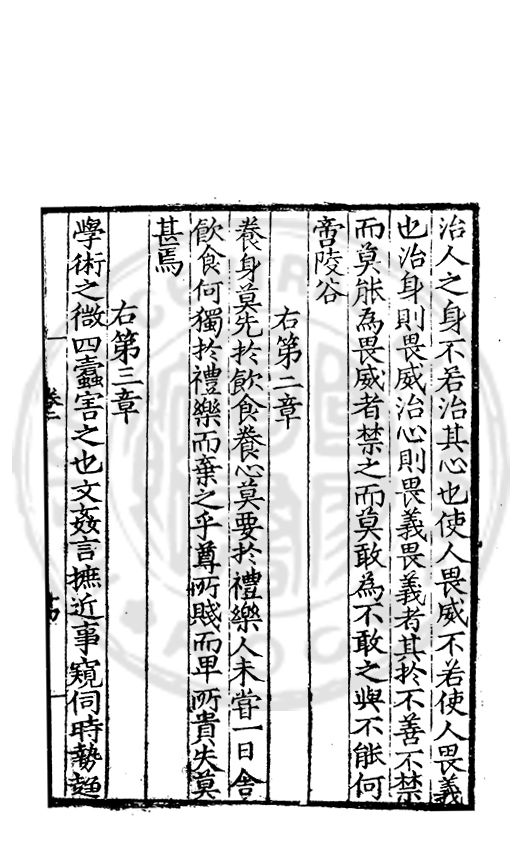 治人之身不若治其心也使人畏威不若使人畏義
也治身則畏威治心則畏義畏義者其於不善不禁
而莫能為畏威者禁之而莫敢為不敢之與不能何
啻陵谷
右第二章
養身莫先於飲食養心莫要於禮樂人未嘗一日舍
飲食何獨於禮樂而棄之乎尊所賤而卑所貴失莫
甚焉
右第三章
學術之微四蠹害之也文姦言摭近事窺伺時勢趨